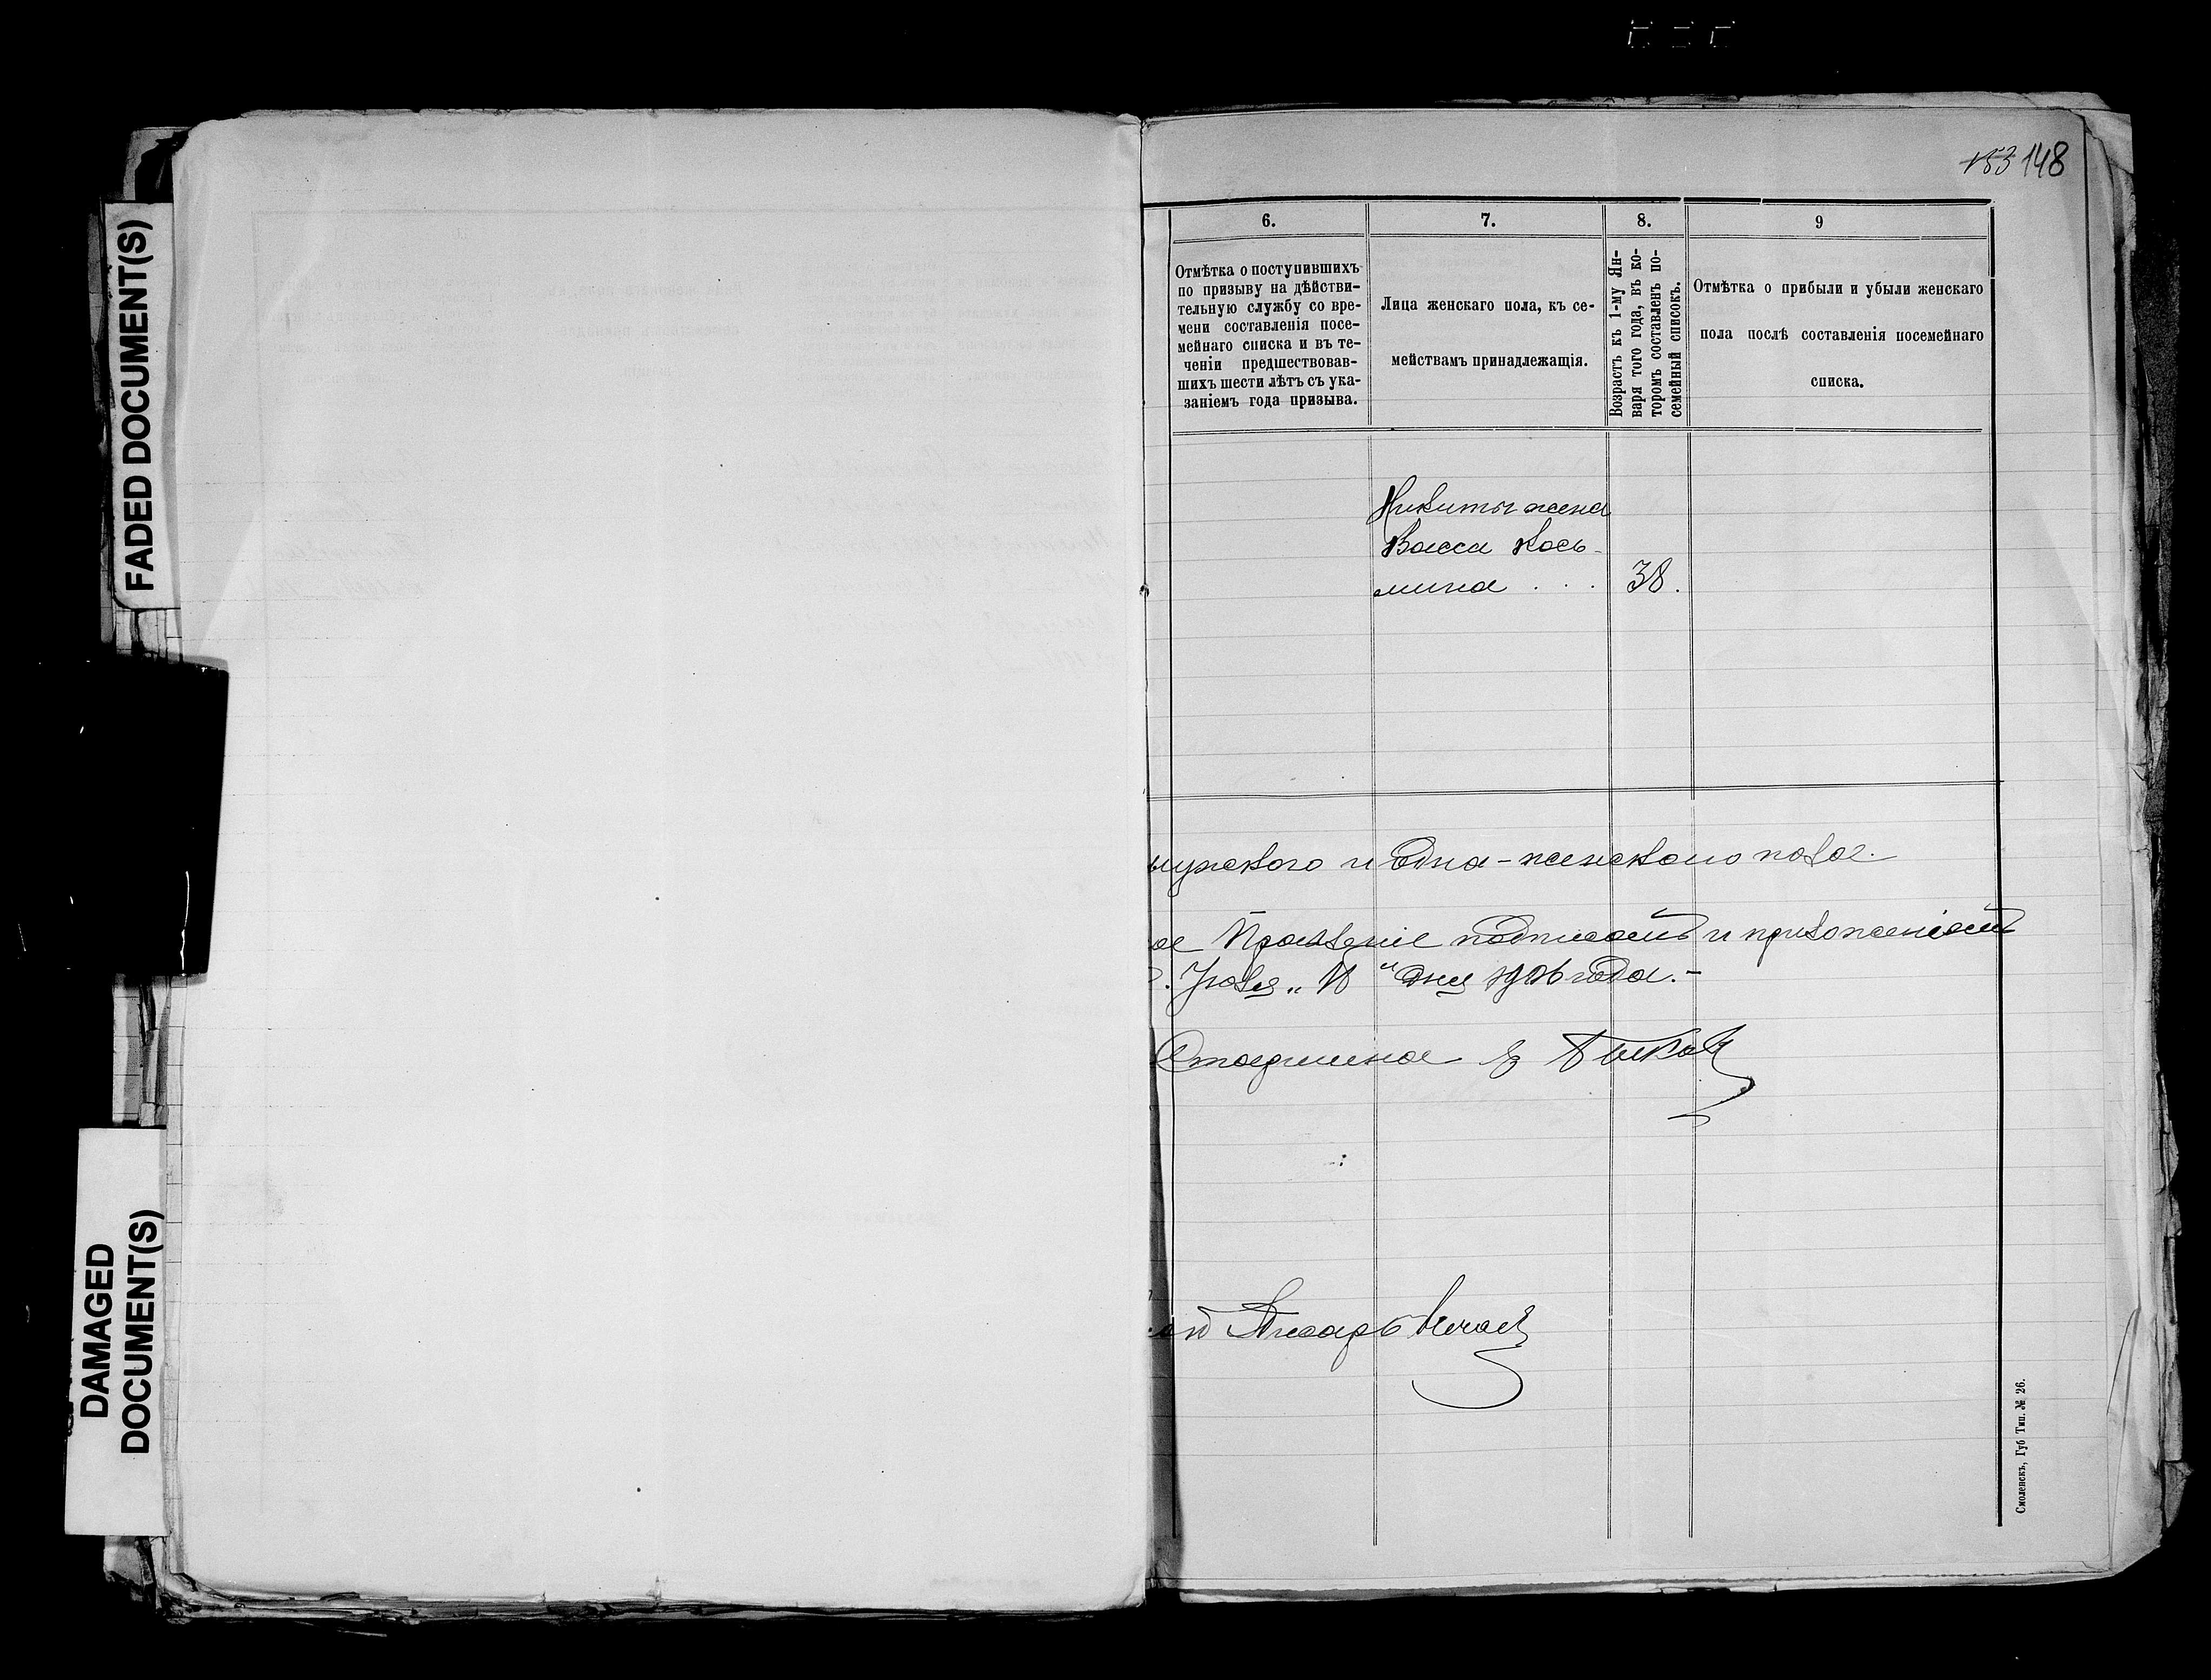 FADED DOCUMENT(S)
DAMAGED
DOCUMENT(S)
153 148
6.
Отмѣтка о поступившихъ
по призыву на дѣйстви-
тельную службу со вре-
мени составленія посе-
мейнаго списка и въ те-
ченіи предшествовав-
шихъ шести лѣтъ съ ука-
заніемъ года призыва.
7.
Лица женскаго пола, къ се-
мействамъ принадлежащія.
8.
Возрастъ къ 1-му Ян-
варя того года, въ ко-
торомъ составленъ по-
семейный списокъ.
9
Отмѣтка о прибыли и убыли женскаго
пола послѣ составленія посемейнаго
списка.
Никиты жена
Васса Кось-
мина . . . 38.
мужского и одна - женского пола.
Правленіе подписомъ и приложеніемъ
Іюля дня 1906 года. -
Старшина
Писарь
Смоленскъ, Губ Тип. № 26.